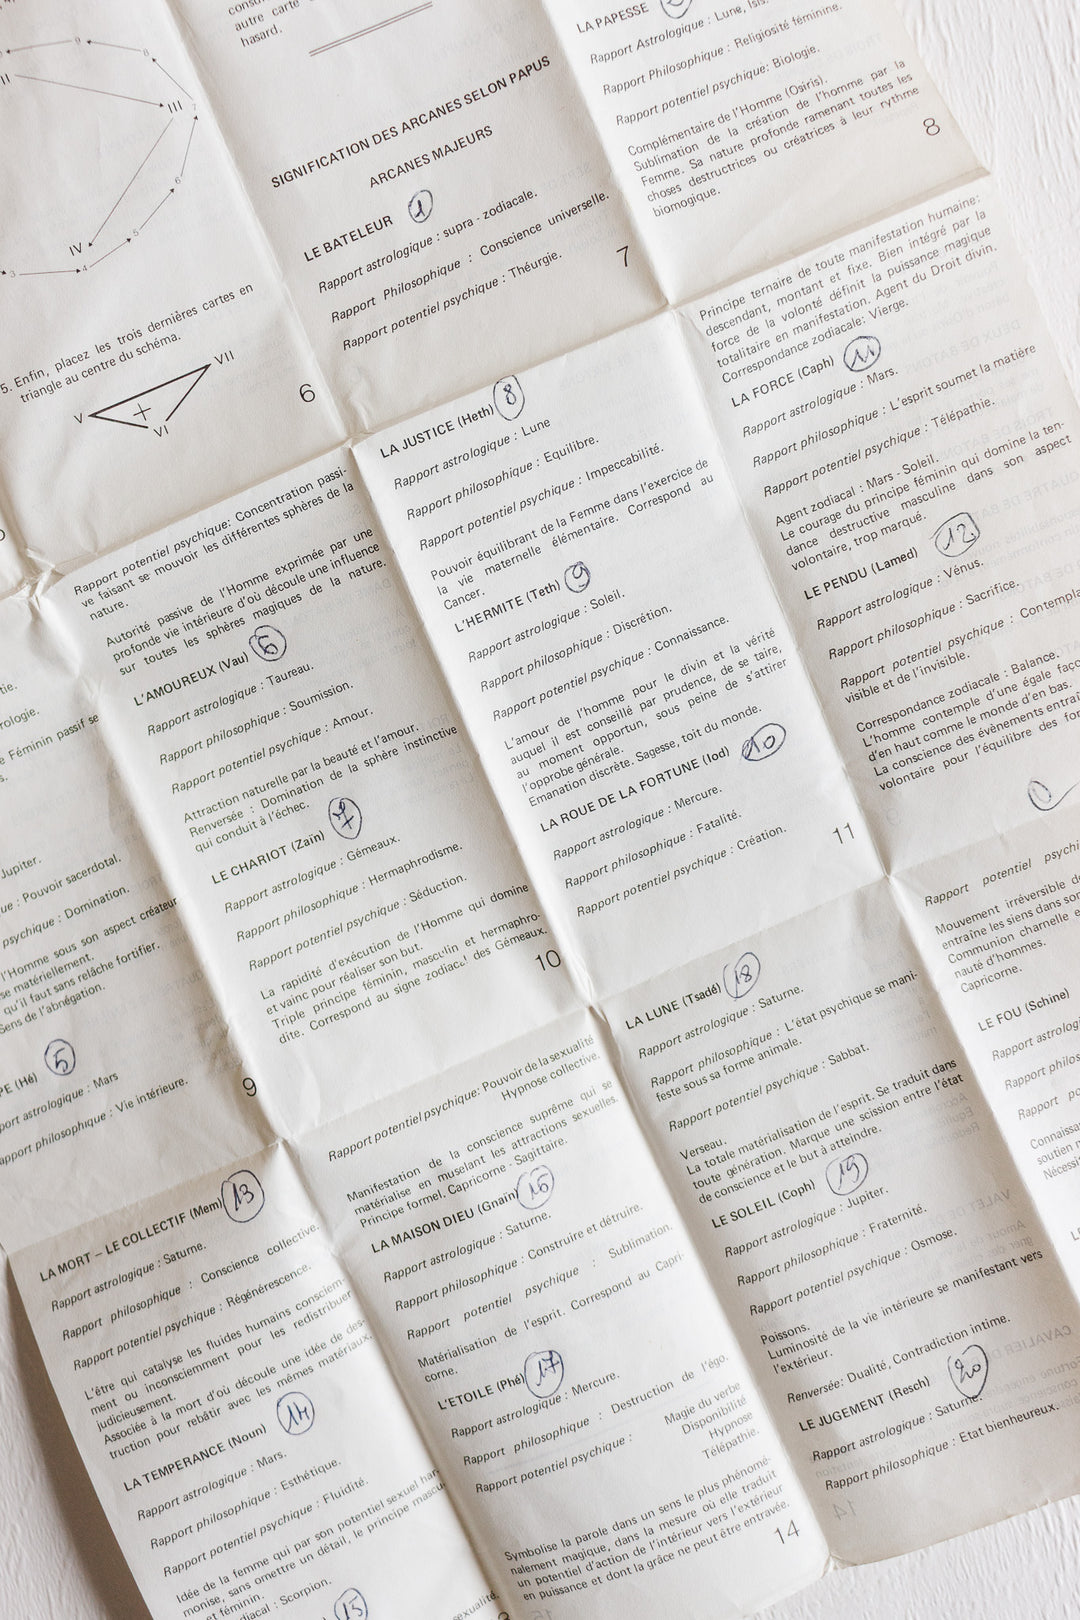 II
III
IV
5. Enfin, placez les trois dernières cartes en
triangle au centre du schéma.
VII
V
VI
6
autre carte
hasard.
SIGNIFICATION DES ARCANES SELON PAPUS
ARCANES MAJEURS
LE BATELEUR 1
Rapport astrologique : supra - zodiacale.
Rapport Philosophique : Conscience universelle.
Rapport potentiel psychique : Théurgie.
7
LA PAPESSE 2
Rapport Astrologique : Lune, Isis.
Rapport Philosophique : Religiosité féminine.
Rapport potentiel psychique: Biologie.
Complémentaire de l'Homme (Osiris).
Sublimation de la création de l'homme par la
Femme. Sa nature profonde ramenant toutes les
choses destructrices ou créatrices à leur rythme
biomogique.
8
tie.
rologie.
Féminin passif se
s.
Jupiter.
: Pouvoir sacerdotal.
psychique : Domination.
l'Homme sous son aspect créateur
se matériellement.
qu'il faut sans relâche fortifier.
Sens de l'abnégation.
PE (Hé) 5
port astrologique : Mars
apport philosophique : Vie intérieure.
9
Rapport potentiel psychique: Concentration passi-
ve faisant se mouvoir les différentes sphères de la
nature.
Autorité passive de l'Homme exprimée par une
profonde vie intérieure d'où découle une influence
sur toutes les sphères magiques de la nature.
L'AMOUREUX (Vau) 6
Rapport astrologique : Taureau.
Rapport philosophique : Soumission.
Rapport potentiel psychique : Amour.
Attraction naturelle par la beauté et l'amour.
Renversée : Domination de la sphère instinctive
qui conduit à l'échec.
LE CHARIOT (Zaïn) 7
Rapport astrologique : Gémeaux.
Rapport philosophique : Hermaphrodisme.
Rapport potentiel psychique : Séduction.
La rapidité d'exécution de l'Homme qui domine
et vainc pour réaliser son but.
Triple principe féminin, masculin et hermaphro-
dite. Correspond au signe zodiacal des Gémeaux.
10
LA JUSTICE (Heth) 8
Rapport astrologique : Lune
Rapport philosophique : Equilibre.
Rapport potentiel psychique : Impeccabilité.
Pouvoir équilibrant de la Femme dans l'exercice de
la vie maternelle élémentaire. Correspond au
Cancer.
L'HERMITE (Teth) 9
Rapport astrologique : Soleil.
Rapport philosophique : Discrétion.
Rapport potentiel psychique : Connaissance.
L'amour de l'homme pour le divin et la vérité
auquel il est conseillé par prudence, de se taire,
au moment opportun, sous peine de s'attirer
l'opprobe générale.
Emanation discrète. Sagesse, toit du monde.
LA ROUE DE LA FORTUNE (Iod) 10
Rapport astrologique : Mercure.
Rapport philosophique : Fatalité.
Rapport potentiel psychique : Création.
11
Principe ternaire de toute manifestation humaine:
descendant, montant et fixe. Bien intégré par la
force de la volonté définit la puissance magique
totalitaire en manifestation. Agent du Droit divin.
Correspondance zodiacale: Vierge.
LA FORCE (Caph) 11
Rapport astrologique : Mars.
Rapport philosophique : L'esprit soumet la matière
Rapport potentiel psychique : Télépathie.
Agent zodiacal : Mars - Soleil.
Le courage du principe féminin qui domine la ten-
dance destructive masculine dans son aspect
volontaire, trop marqué.
LE PENDU (Lamed) 12
Rapport astrologique : Vénus.
Rapport philosophique : Sacrifice.
Rapport potentiel psychique : Contempla
visible et de l'invisible.
Correspondance zodiacale : Balance.
L'homme contemple d'une égale faço
d'en haut comme le monde d'en bas.
La conscience des évènements entraî
volontaire pour l'équilibre des for
LA MORT – LE COLLECTIF (Mem) 13
Rapport astrologique : Saturne.
Rapport philosophique : Conscience collective.
Rapport potentiel psychique : Régénérescence.
L'être qui catalyse les fluides humains consciem-
ment ou inconsciemment pour les redistribuer
judicieusement.
Associée à la mort d'où découle une idée de des-
truction pour rebâtir avec les mêmes matériaux.
LA TEMPERANCE (Noun) 14
Rapport astrologique : Mars.
Rapport philosophique : Esthétique.
Rapport potentiel psychique : Fluidité.
Idée de la femme qui par son potentiel sexuel har-
monise, sans omettre un détail, le principe mascu
et féminin.
diacal : Scorpion.
15
sexualité.
Rapport potentiel psychique: Pouvoir de la sexualité
Hypnose collective.
Manifestation de la conscience suprême qui se
matérialise en muselant les attractions sexuelles.
Principe formel. Capricorne - Sagittaire.
LA MAISON DIEU (Gnain) 16
Rapport astrologique : Saturne.
Rapport philosophique : Construire et détruire.
Rapport potentiel psychique : Sublimation.
Matérialisation de l'esprit. Correspond au Capri-
corne.
L'ETOILE (Phé) 17
Rapport astrologique : Mercure.
Rapport philosophique : Destruction de l'égo.
Rapport potentiel psychique : Magie du verbe
Disponibilité
Hypnose
Télépathie.
Symbolise la parole dans un sens le plus phénomé-
nalement magique, dans la mesure où elle traduit
un potentiel d'action de l'intérieur vers l'extérieur
en puissance et dont la grâce ne peut être entravée.
14
LA LUNE (Tsadé) 18
Rapport astrologique : Saturne.
Rapport philosophique : L'état psychique se mani-
feste sous sa forme animale.
Rapport potentiel psychique : Sabbat.
Verseau.
La totale matérialisation de l'esprit. Se traduit dans
toute génération. Marque une scission entre l'état
de conscience et le but à atteindre.
LE SOLEIL (Coph) 19
Rapport astrologique : Jupiter.
Rapport philosophique : Fraternité.
Rapport potentiel psychique : Osmose.
Poissons.
Luminosité de la vie intérieure se manifestant vers
l'extérieur.
Renversée: Dualité, Contradiction intime.
LE JUGEMENT (Resch) 20
Rapport astrologique : Saturne.
Rapport philosophique : Etat bienheureux.
Rapport potentiel psychi
Mouvement irréversible d
entraîne les siens dans so
Communion charnelle e
nauté d'hommes.
Capricorne.
LE FOU (Schine)
Rapport astrologi
Rapport philos
Rapport po
Connaissa
soutien
Nécessi